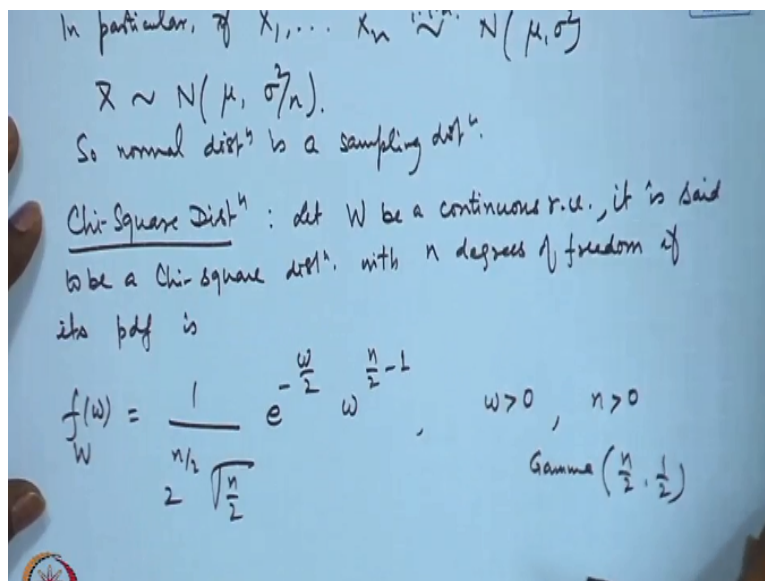 In particular, if X₁, ... Xₙ i.i.d. ~ N(μ, σ²)
X̄ ~ N(μ, σ²/n).
So normal distⁿ is a sampling distⁿ.
Chi-Square Distⁿ : Let W be a continuous r.v., it is said
to be a Chi-square distⁿ. with n degrees of freedom if
its pdf is
f_W(w) = 1 / (2^(n/2) Γ(n/2)) e^(-w/2) w^(n/2 - 1) , w>0 , n>0
Gamma (n/2, 1/2)